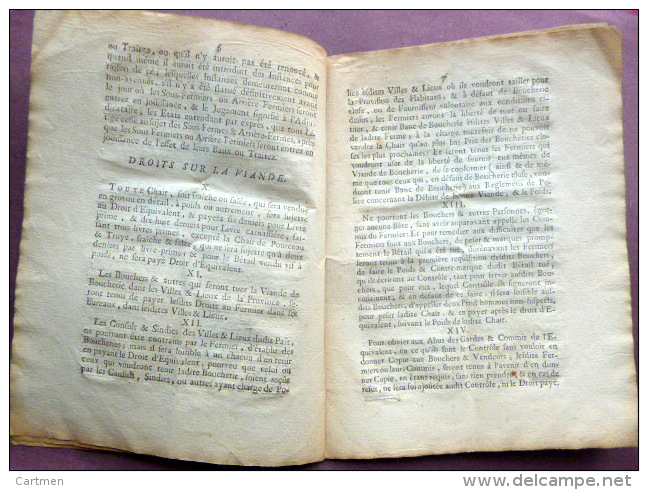 6
ou Traitez, ou qu'il n'y auroit pas été renoncé, &
quand même il auroit été introduit des Instances pour
raison de ce; lesquelles Instances demeureront comme
non-avenues, s'il n'y a été statué définitivement avant
le jour où les Sous-Fermiers ou Arriere-Fermiers seront
entrez en jouissance, & le Jugement signifié à l'Adju-
dicataire, les Etats entendant par exprès, que tous Li-
tige cesse au sujet des Sous-Fermes & Arriere-Fermes, après
que les Sous-Fermiers ou Arriere-Fermiers seront entrez en
jouissance de l'effet de leurs Baux ou Traitez.
DROITS SUR LA VIANDE.
X.
TOUTE Chair, soit fraîche ou salée, qui sera venduë
en gros ou en détail, à poids ou autrement, sera sujette
au Droit d'Equivalent, & payera six deniers pour Livre
prime, & dix-huit deniers pour Livre carnassiére, fai-
sant trois livres primes, excepté la Chair de Pourceau
& Truye, fraîche & salée, qui ne sera sujette qu'à deux
deniers par livre-prime; & pour le Bétail vendu vif à
poids, ne sera payé Droit d'Equivalent.
XI.
Les Bouchers & autres qui seront tirer la Viande de
Boucherie dans les Villes & Lieux de la Province, se-
ront tenus de payer lesdits Droits au Fermier dans ses
Bureaux, dans lesdites Villes & Lieux.
XII.
Les Consuls & Sindics des Villes & Lieux dudit Païs,
ne pourront être contraints par le Fermier, d'établir des
Boucheries; mais il sera loisible à un chacun d'en tenir
en payant le Droit d'Equivalent, pourvû que celui ou
ceux qui voudront tenir ladite Boucherie, soient reçûs
par les Consuls, Sindics, ou autres ayant charge de Po-
7
lice esdites Villes & Lieux où ils voudront tailler pour
la Provision des Habitans; & à défaut de Boucherie
close, ou de Fournisseur volontaire aux conditions ci-
dessus, les Fermiers auront la liberté de tuer ou faire
tuer, & tenir Banc de Boucherie esdites Villes & Lieux
de ladite Ferme; à la charge toutefois de ne pouvoir
vendre la Chair qu'au plus bas Prix des Boucheries clo-
ses les plus prochaines: Et seront tous les Fermiers qui
voudront user de la liberté de fournir eux-mêmes de
Viande de Boucherie, de se conformer (ainsi & de mê-
me que tous ceux qui, en défaut de Boucherie close, vou-
dront tenir Banc de Boucherie) aux Reglemens de Po-
lice concernant la Débite de bonne Viande, & le Poids.
XIII.
Ne pourront les Bouchers & autres Personnes, Egor-
ger aucune Bête, sans préalablement appeller les Com-
mis du Fermier: Et pour remedier aux difficultez que les
Fermiers font aux Bouchers, de peser & marquer promp-
tement le Bétail qui a été tué, dorénavant les Fermiers
seront tenus à la premiere requisition desdits Bouchers,
de faire le Poids & Contre-marque dudit Bétail tué,
qu'ils écriront au Contrôle, tant pour servir ausdits Bou-
chers, que pour eux, lequel Contrôle ils signeront in-
continent, & en défaut de ce faire, il sera loisible aus-
dits Bouchers, d'appeller deux Prud'hommes non suspects,
pour peser ladite Chair, & en payer après le droit d'E-
quivalent, suivant le Poids de ladite Chair.
XIV.
Pour obvier aux Abus des Gardes & Commis de l'E-
quivalent, en ce qu'ils font le Contrôle sans vouloir en
donner Copie aux Bouchers & Vendeurs, lesdits Fer-
miers ou leurs Commis, seront tenus à l'avenir d'en don-
ner Copie, en étant requis, sans rien prendre, & en cas de
refus, ne sera foi ajoûtée audit Contrôle, ni le Droit payé.
Cartmen
www.delcampe.net